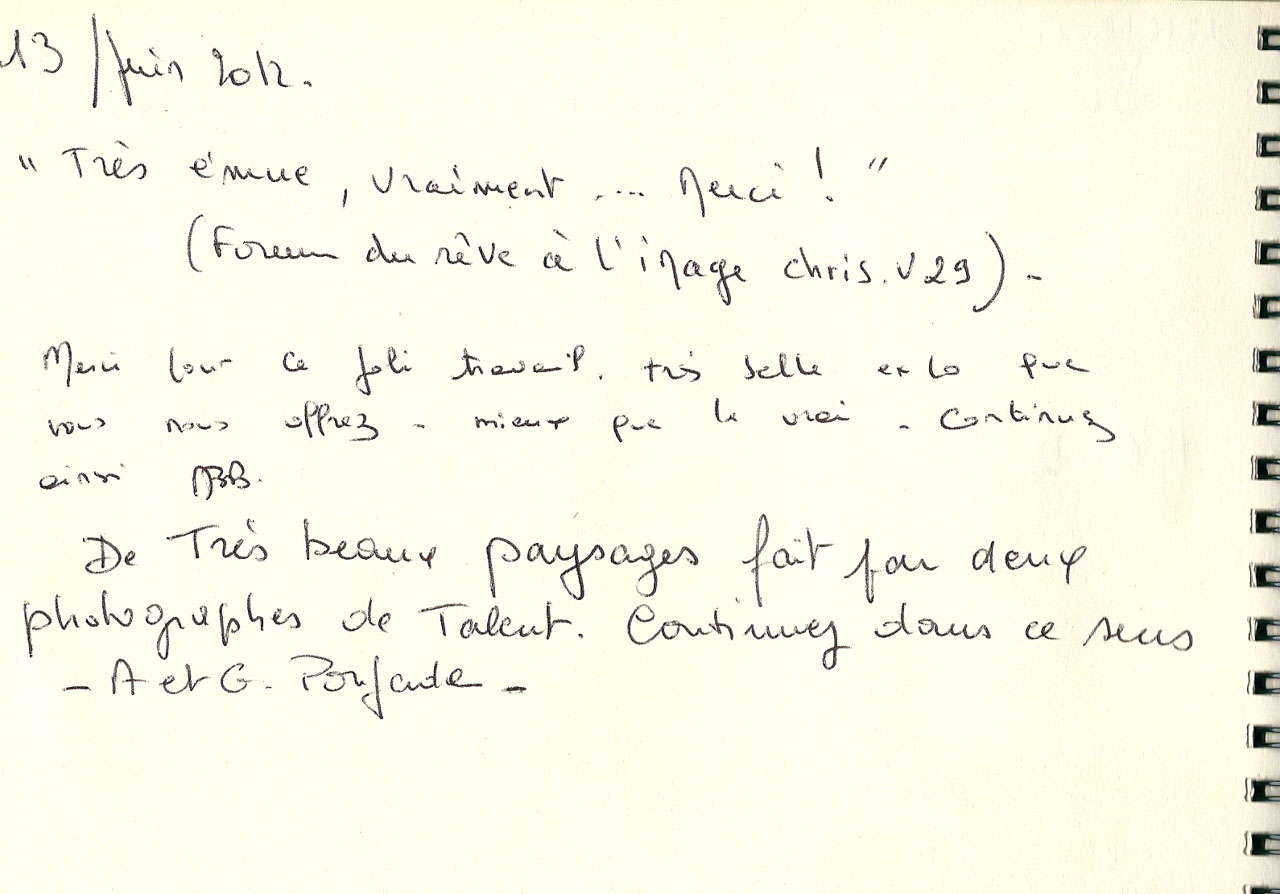 13 / Juin 2012.
" Très émue, vraiment .... Merci ! "
(Forum du rêve à l'image chris.v29) -
Merci pour ce joli travail. très belle que
vous nous offrez - mieux que le vrai - Continuez
ainsi ABB.
De Très beaux paysages fait par deux
photographes de Talent. Continuez dans ce sens
- A et G.